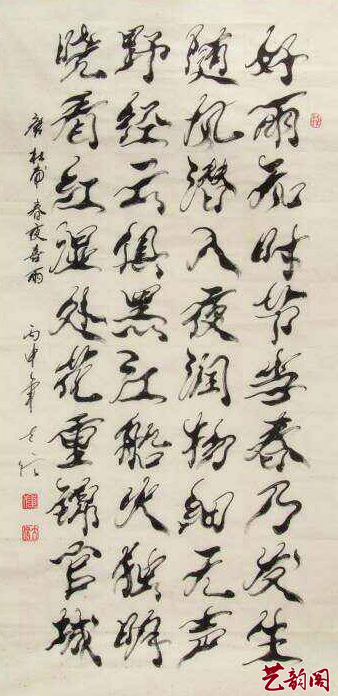 好雨知时节当春乃发生
随风潜入夜润物细无声
野径云俱黑江船火独明
晓看红湿处花重锦官城
唐杜甫春夜喜雨 丙申年
艺韵阁